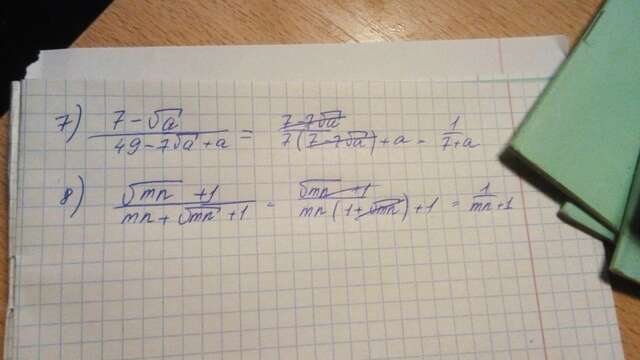 7) (7 - √a)/(49 - 7√a + a) = (7 - 7√a)/(7(7 - 7√a) + a) = 1/(7 + a)
8) (√mn + 1)/(mn + √mn + 1) = (√mn + 1)/(mn(1 + √mn) + 1) = 1/(mn + 1)